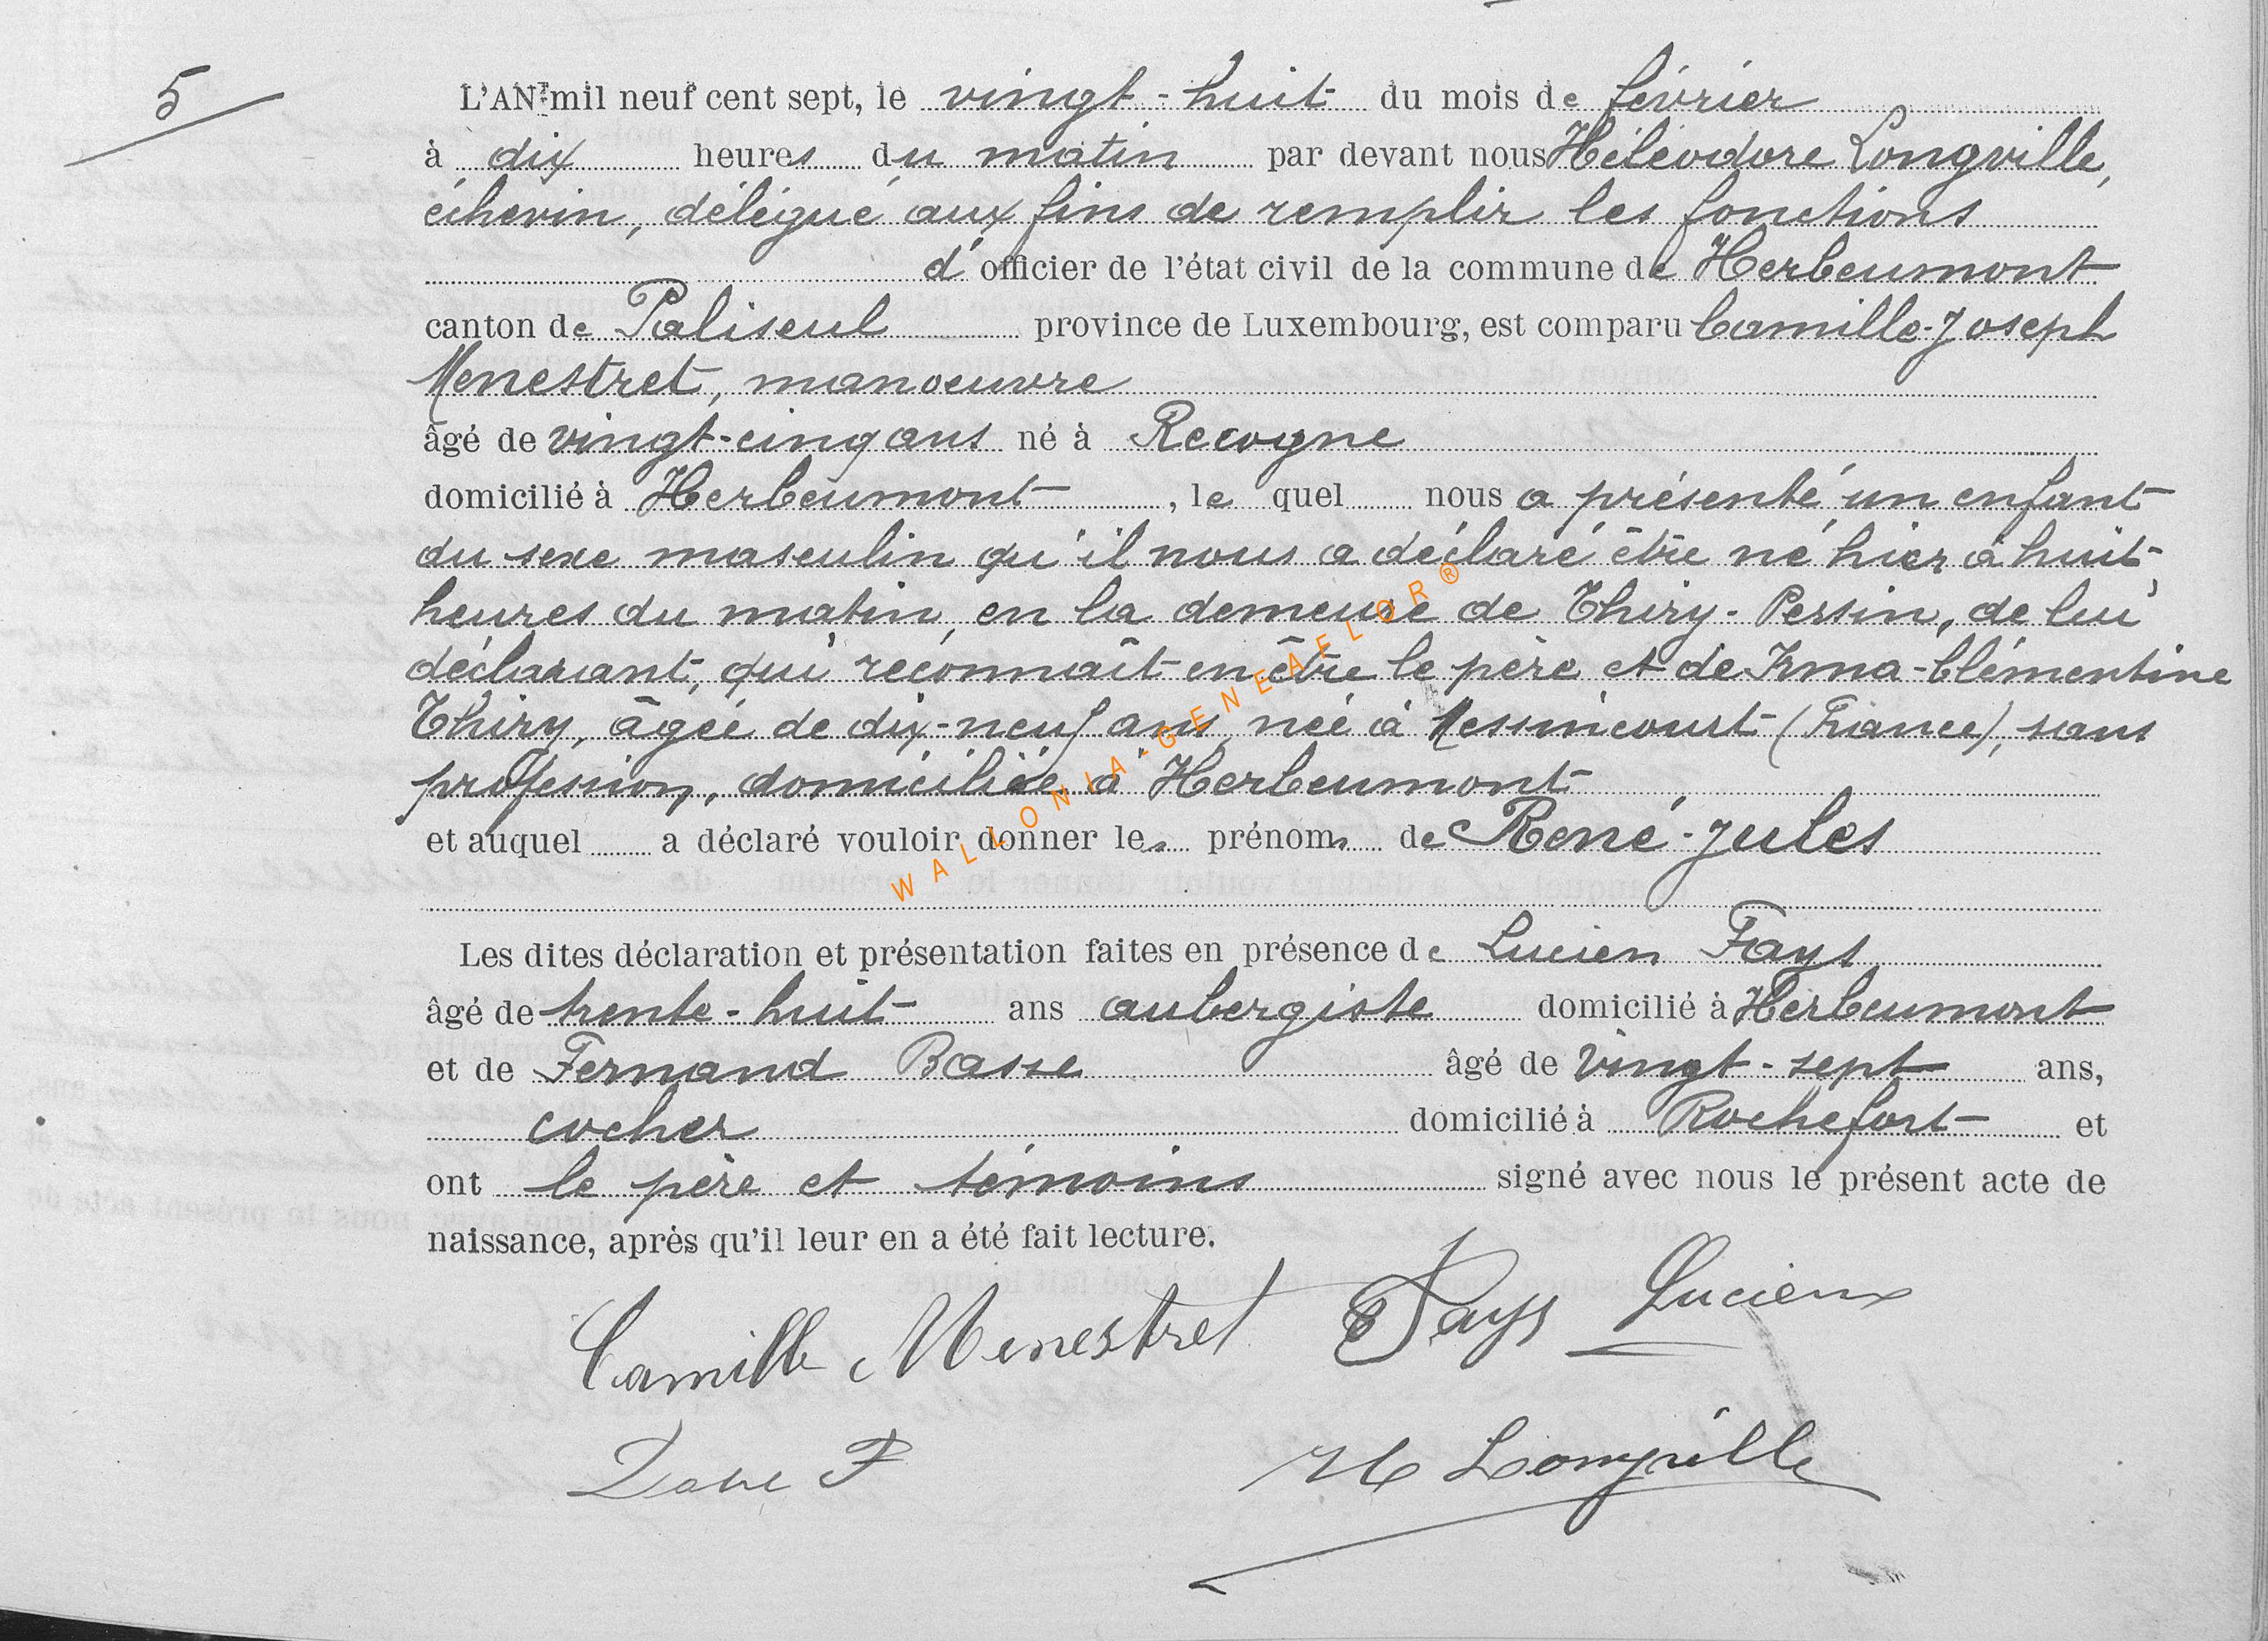 5
L'AN mil neuf cent sept, le vingt-huit du mois de février
à dix heures du matin par devant nous Héléodore Longville,
échevin, délégué aux fins de remplir les fonctions
d'officier de l'état civil de la commune de Herbeumont
canton de Paliseul province de Luxembourg, est comparu Camille-Joseph
Menestret, manoeuvre
âgé de vingt-cinq ans né à Recogne
domicilié à Herbeumont, le quel nous a présenté un enfant
du sexe masculin qu'il nous a déclaré être né hier à huit
heures du matin, en la demeure de Thiry-Perrin, de lui
déclarant, qui reconnaît en être le père et de Irma-Clémentine
Thiry, âgée de dix-neuf ans, née à Messincourt (France), sans
profession, domiciliée à Herbeumont
et auquel a déclaré vouloir donner les prénoms de René-Jules
Les dites déclaration et présentation faites en présence de Lucien Fays
âgé de trente-huit ans aubergiste domicilié à Herbeumont
et de Fernand Basse âgé de vingt-sept ans,
cocher domicilié à Rochefort et
ont le père et témoins signé avec nous le présent acte de
naissance, après qu'il leur en a été fait lecture.
Camille Menestret Fays Lucien
F H Longville
WALLONIA-GENEAFLOR®